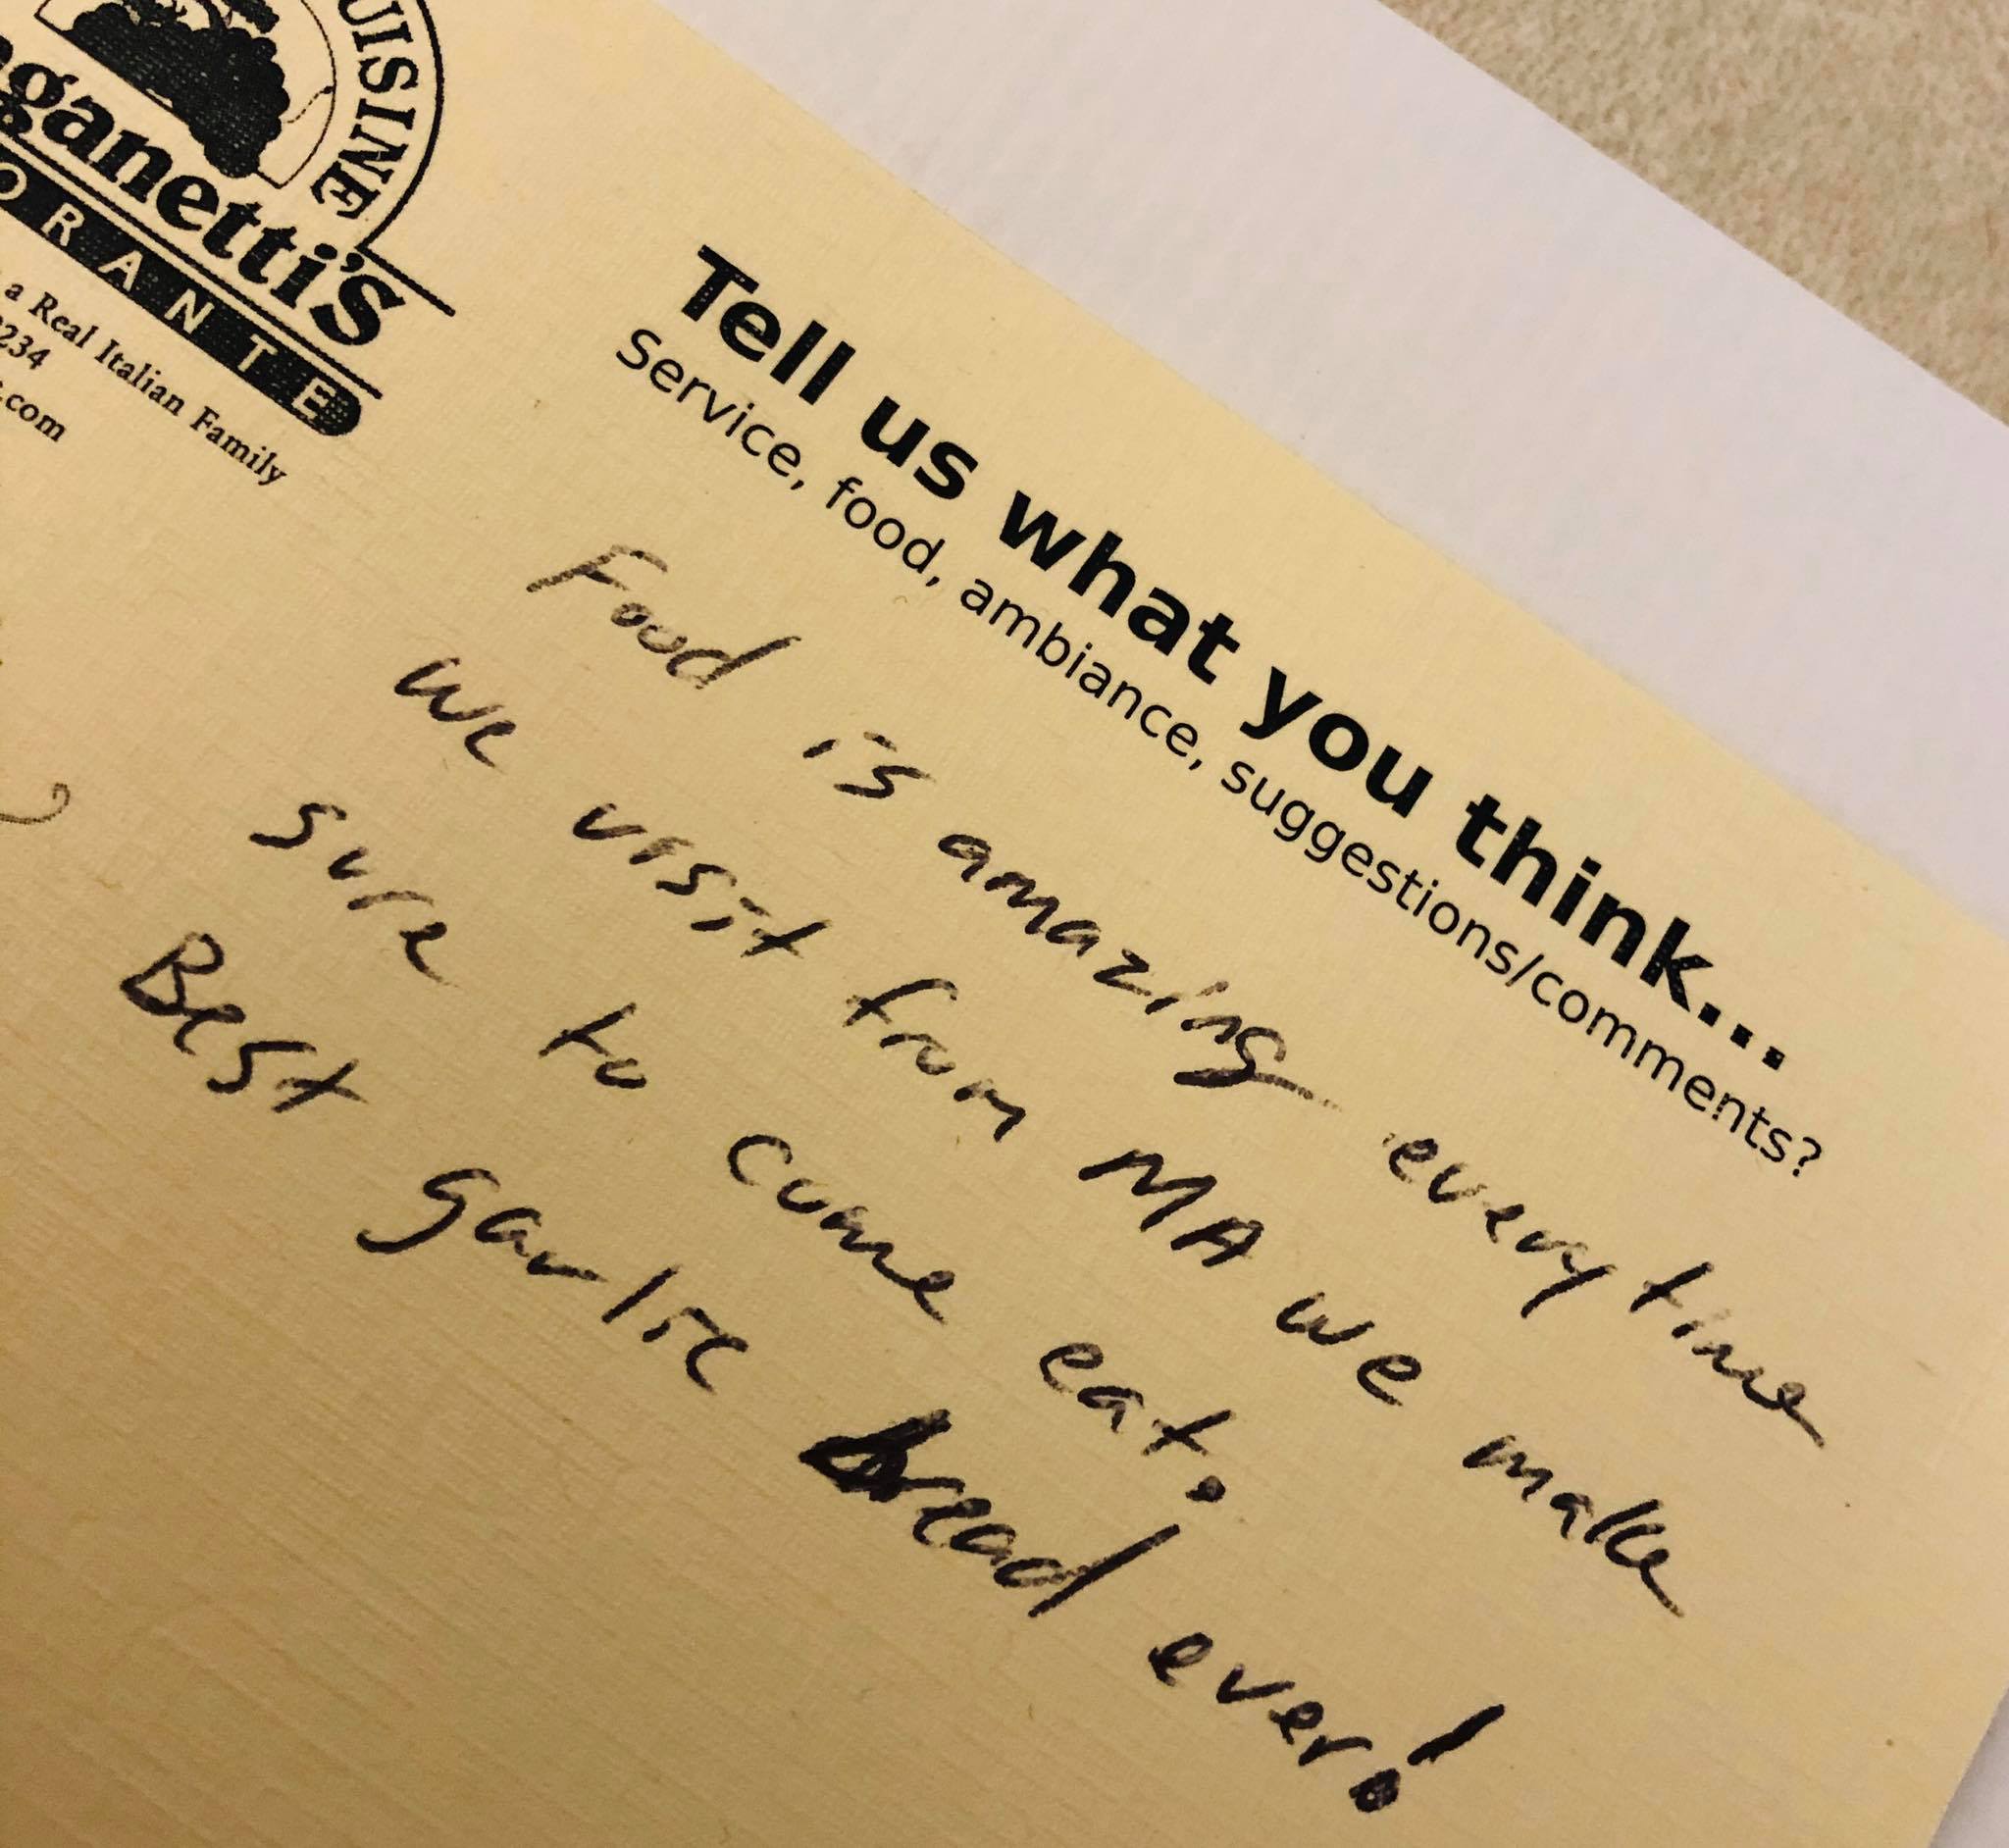 UISINE
ganetti's
ORANTE
a Real Italian Family
234
.com
Tell us what you think...
Service, food, ambiance, suggestions/comments?
Food is amazing everytime
we visit from MA we make
sure to come eat.
Best garlic bread ever!